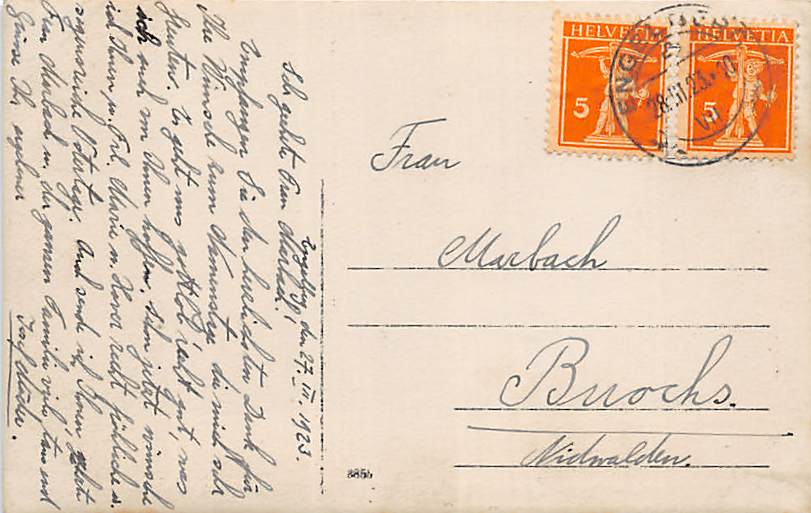 Engelberg, den 27. III. 1923
Ich geehrte Frau Marbach!
Empfangen Sie den herzlichsten Dank für
Ihre Wünsche zum Namenstage die mich sehr
freuten. Es geht uns gottlob recht gut, was
ich auch von Ihnen hoffen. Schon jetzt wünsche
ich Ihnen u. Frl. Marie u. Xaver recht fröhliche u.
segensreiche Ostertage. Und sende ich Ihnen geehrte
Frau Marbach u. der ganzen Familie viele tausend
Grüsse Ihr ergebener
HELVETIA
5
HELVETIA
5
ENGELBERG
28.III.23.-10
VII
Frau
Marbach
Buochs.
Nidwalden.
885b